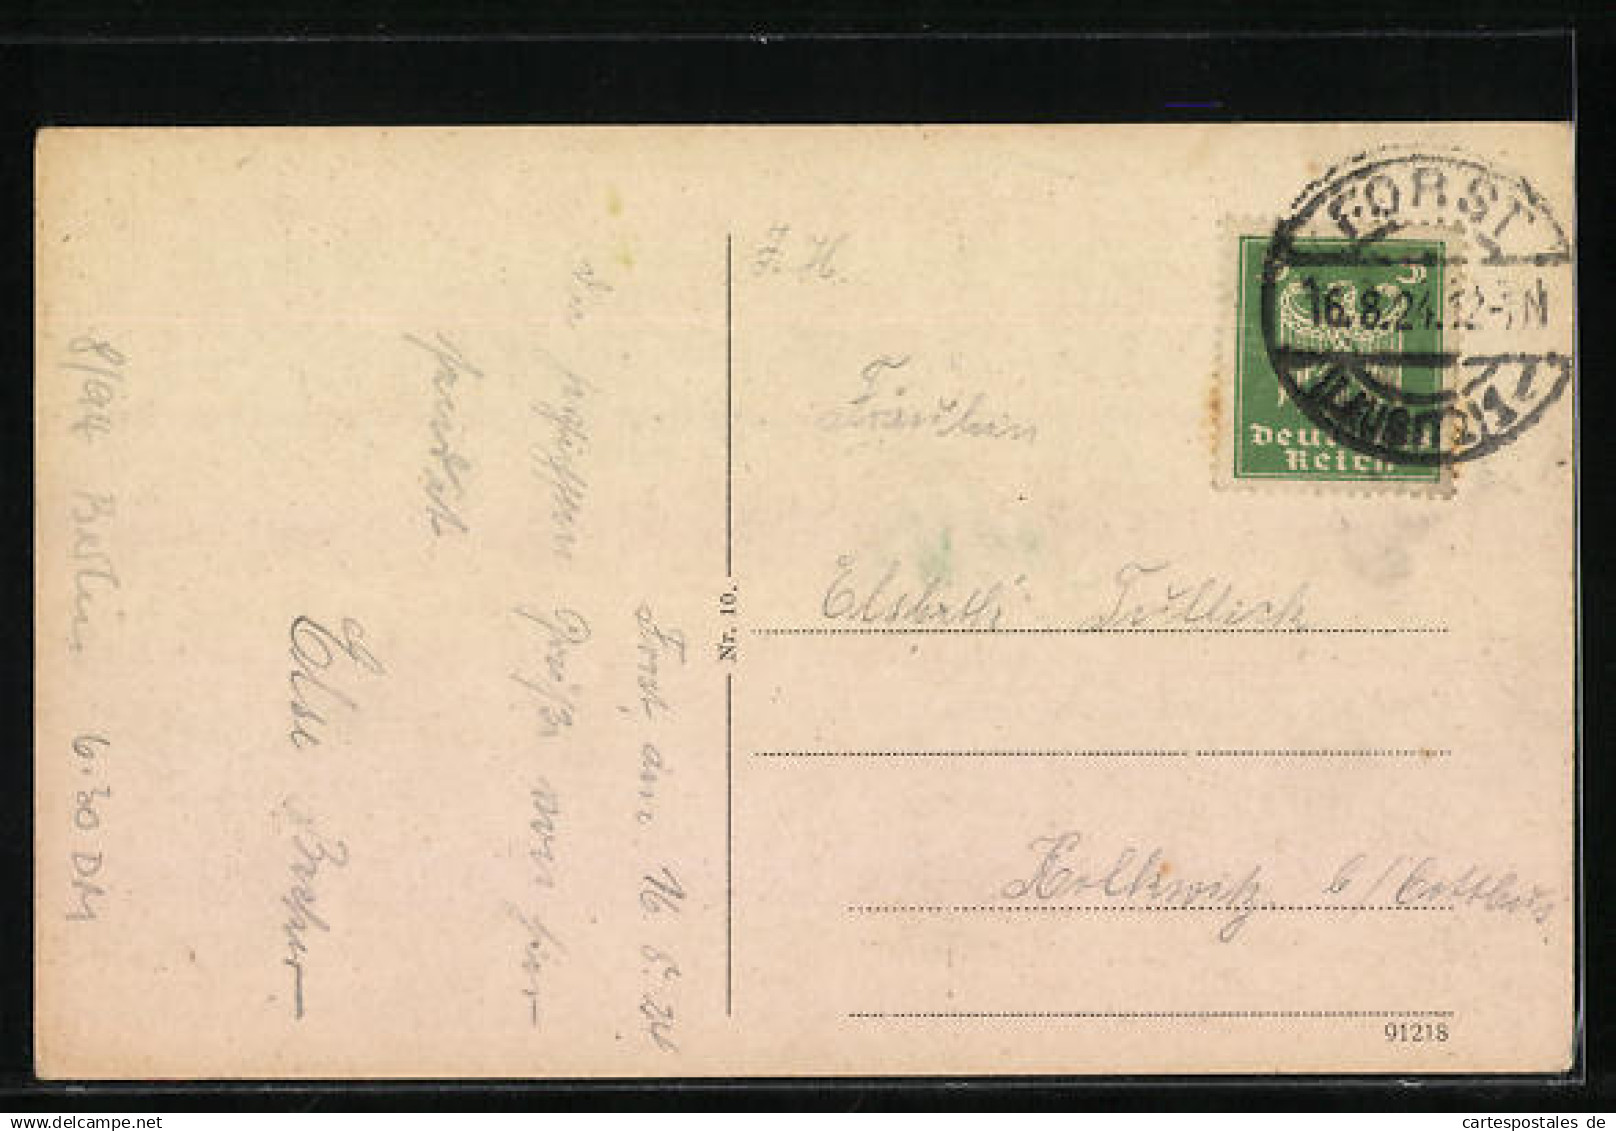 Forst, den 16.8.24
Die herzlichsten Grüße von hier
sendet
Else
8/94 Berlin 6.30 DM
Nr. 10.
Fräulein
Elsbeth
Kolkwitz b/Cottbus
91218
FORST
16.8.24.12-1N
(LAUSITZ)
5
Deutsches
Reich
cartespostales de